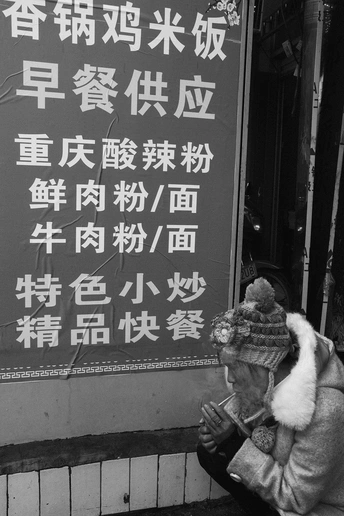 香锅鸡米饭
早餐供应
重庆酸辣粉
鲜肉粉/面
牛肉粉/面
特色小炒
精品快餐